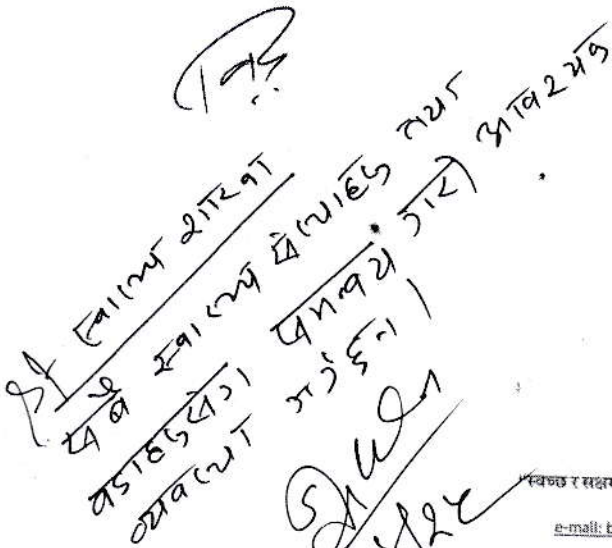 श्री स्वास्थ्य शाखा
सबै स्वास्थ्य संस्थाहरु तथा
वडाहरुसँग समन्वय गरी आवश्यक
व्यवस्था गर्नु हुन।
"स्वच्छ र सक्षम
e-mail: b